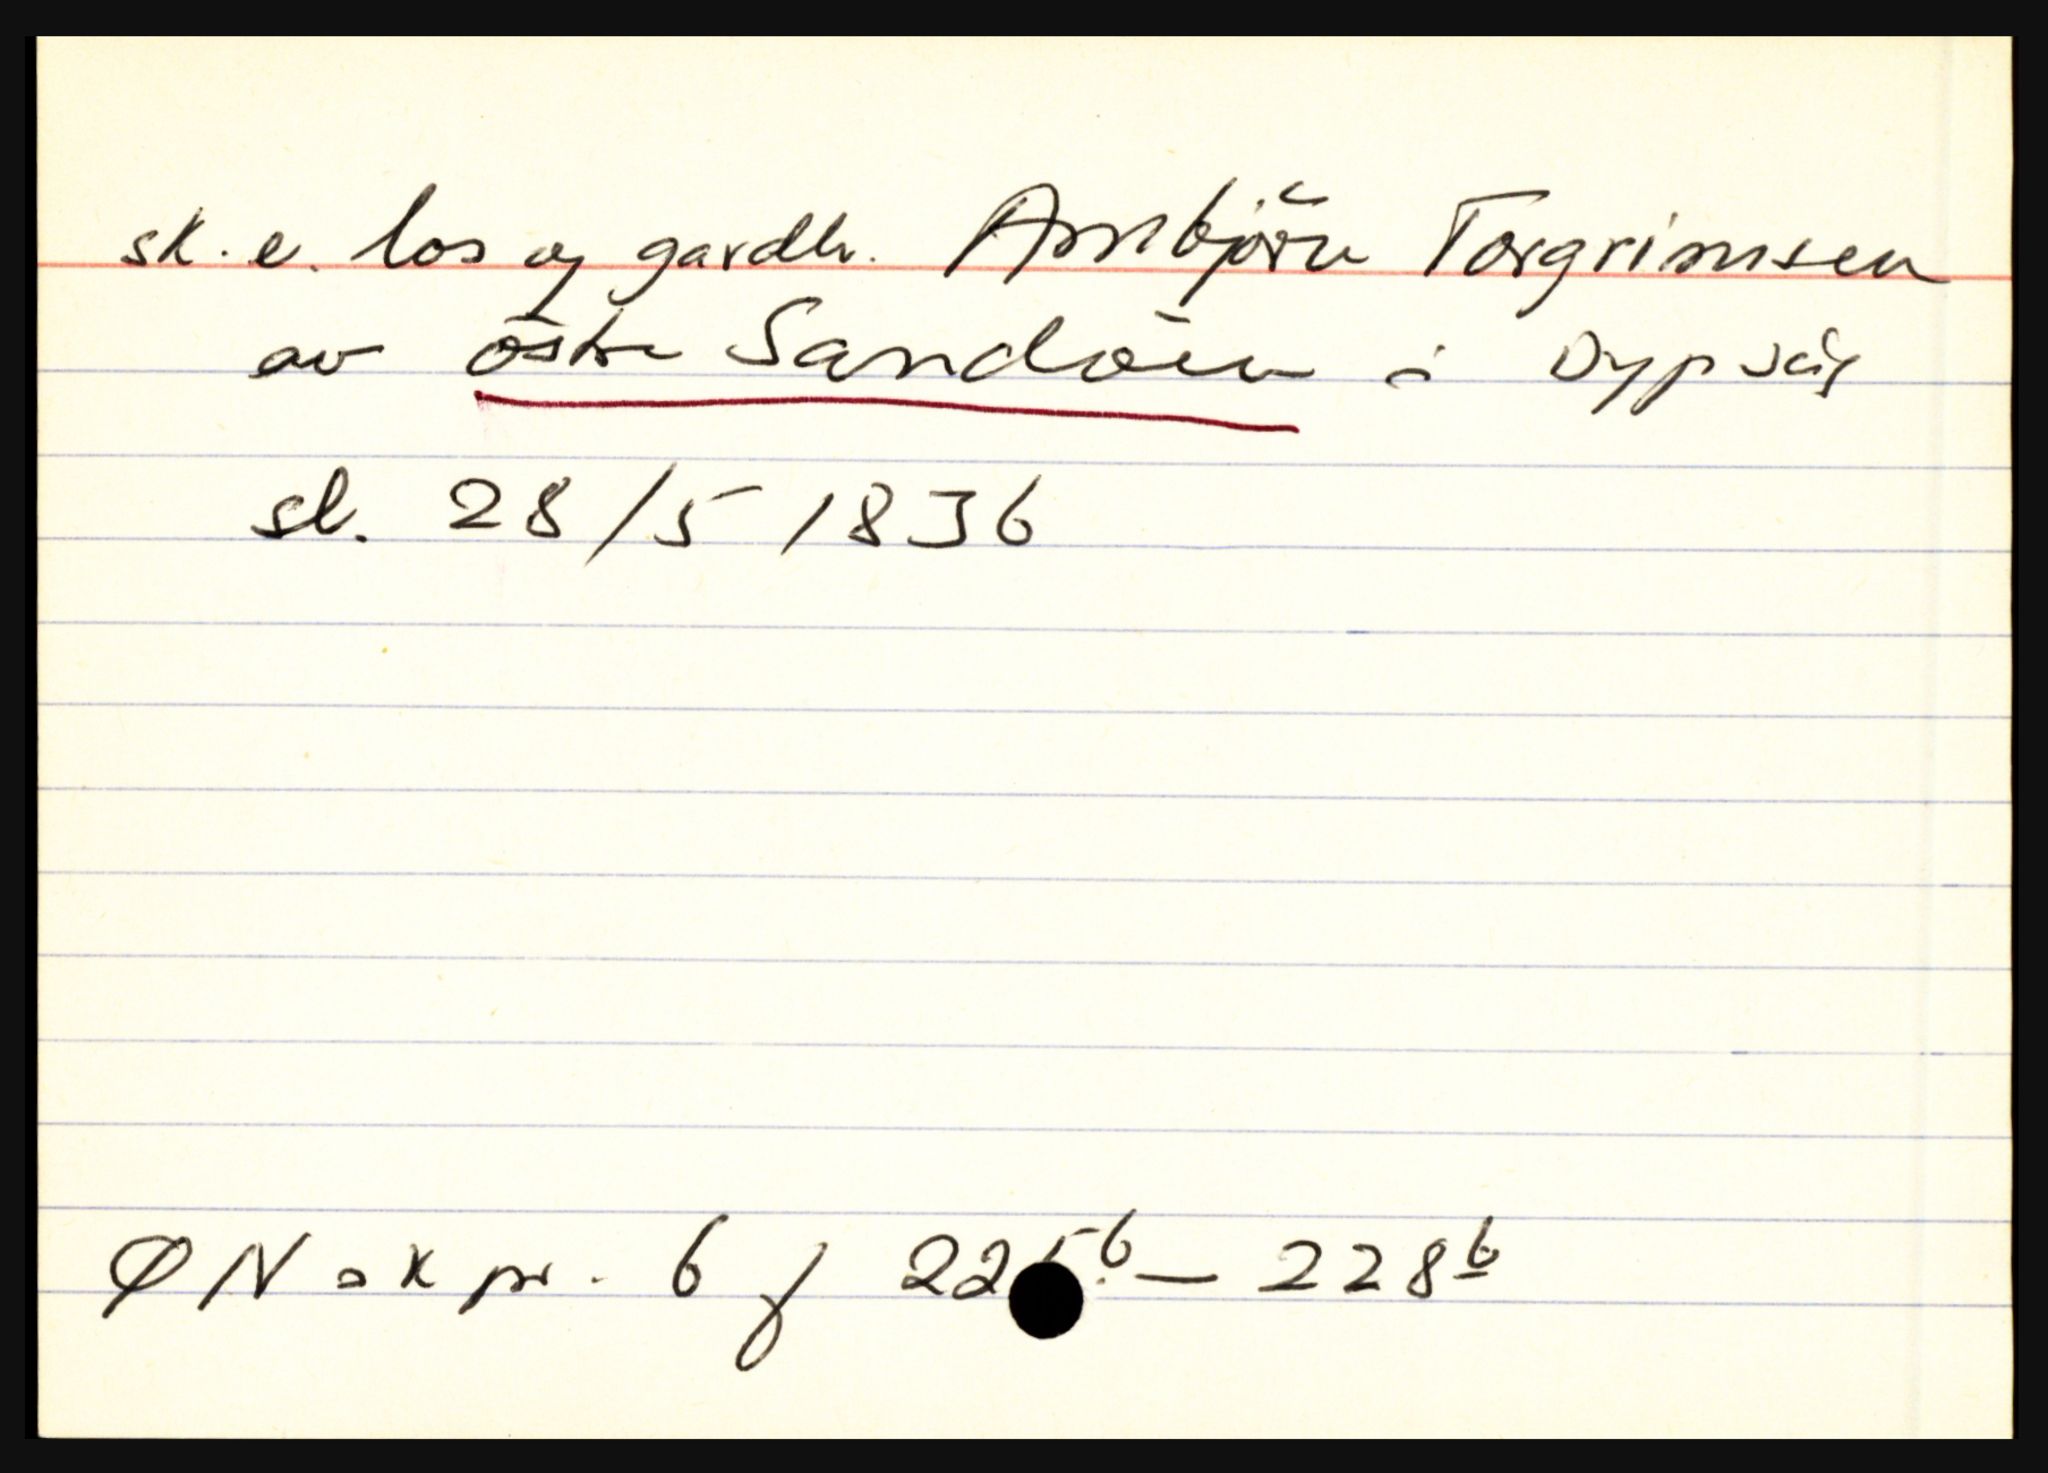 sk. e. los og gardbr. Arnbjörn Torgrimsen
av östre Sandöen i Dypvåg
sl. 28/5 1836
ØN sk pr. 6 f 225b — 228b